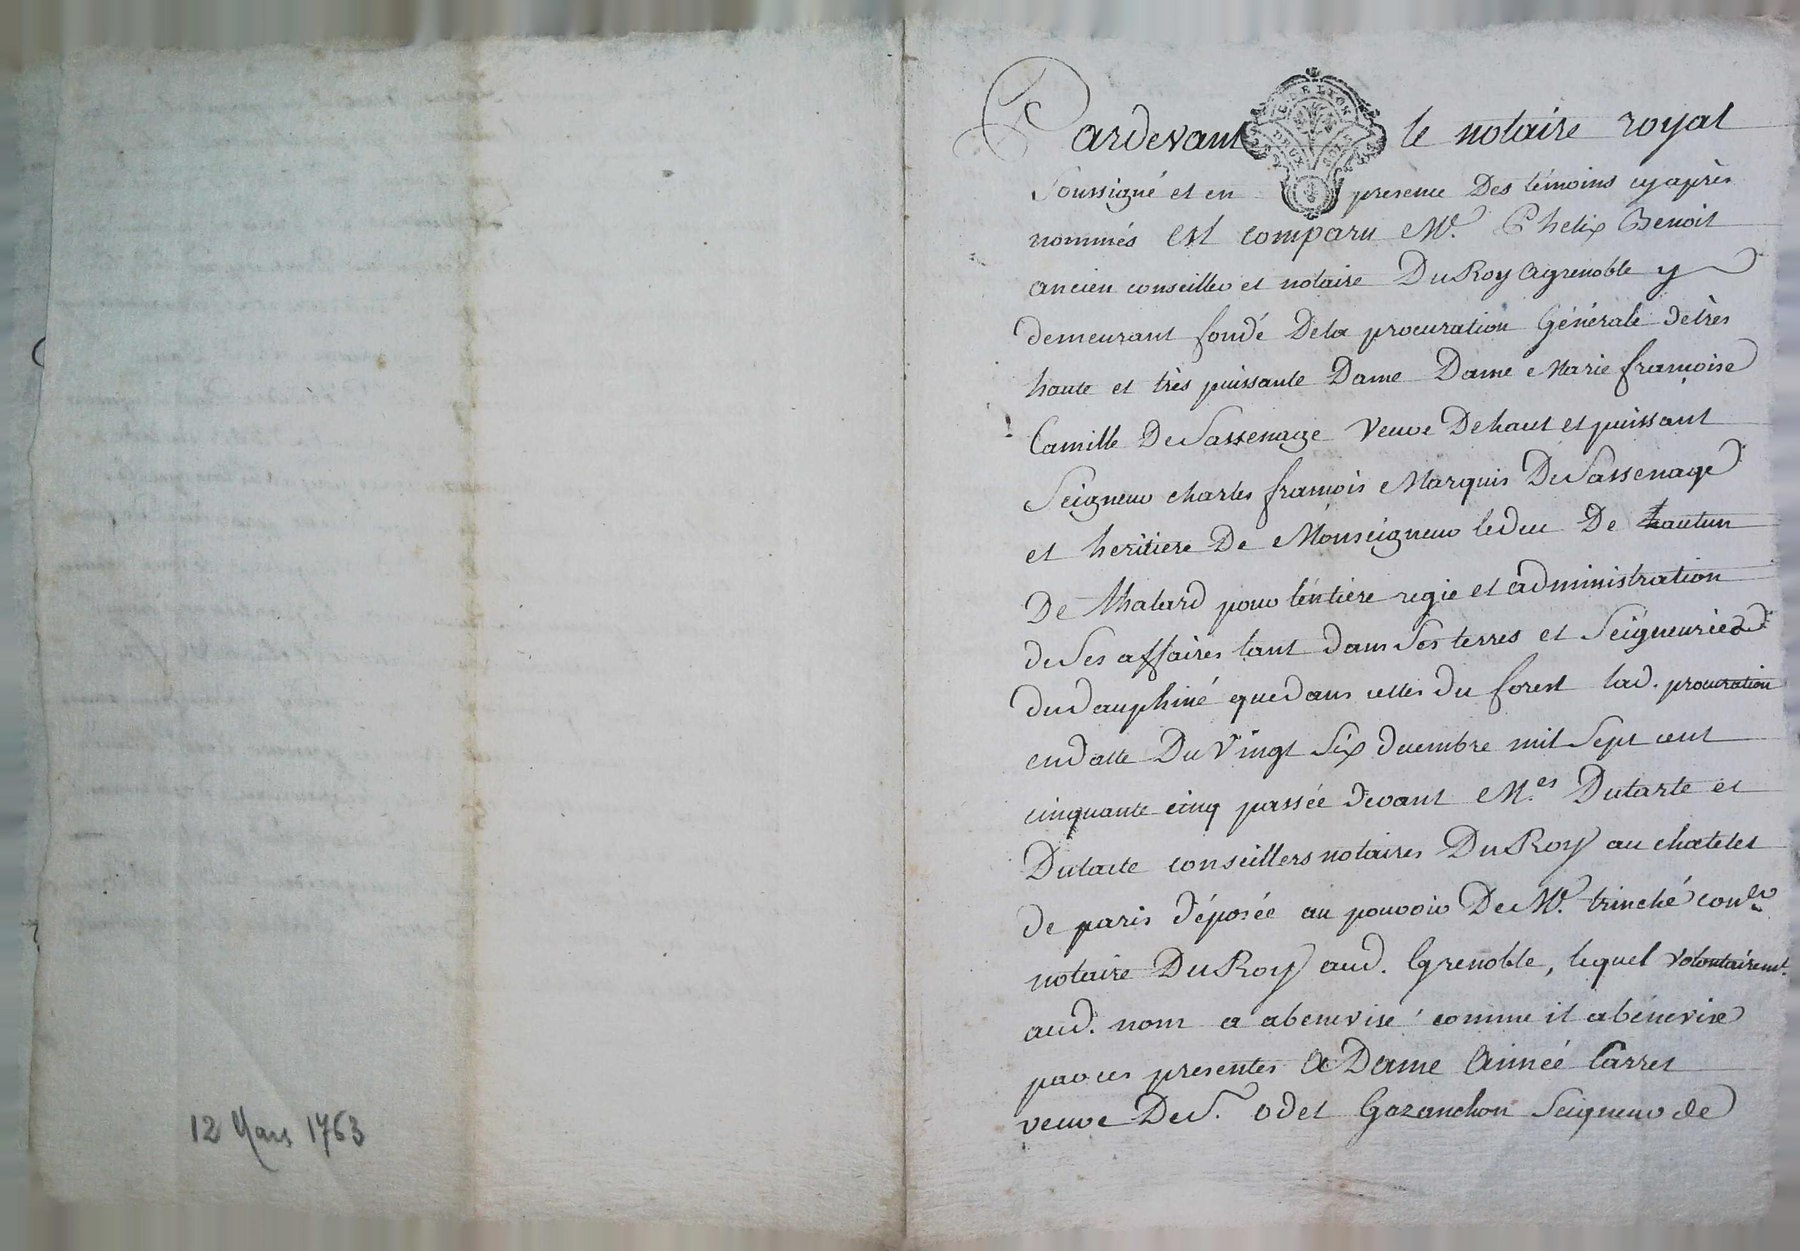 12 Mars 1763
Pardevant le notaire royal
G. DE LYON
DEUX SOLS
Soussigné et en presence Des témoins cyaprès
nommés Est comparu Mr. Phelix Benoit
ancien conseiller et notaire Du Roy a grenoble y
demeurant fondé De la procuration Générale de très
haute et très puissante Dame Dame Marie françoise
Camille De Sassenage Veuve De haut et puissant
Seigneur charles françois Marquis De Sassenage
et heritiere De Monseigneur le duc De hautun
De thalard pour l'entière regie et administration
de Ses affaires tant dans Ses terres et Seigneuries
du dauphiné que dans celles du forest lad. procuration
en datte Du Vingt Six decembre mil Sept cent
cinquante cinq passée devant M.es Dutarte et
Dutarte conseillers notaires Du Roy au chatelet
de paris déposée au pouvoir De Mr. trinché con.er
notaire Du Roy aud. Grenoble, lequel volontairemt.
aud. nom a abenevisé comme il abénevise
par ces presentes A Dame Aimée Carret
veuve De S.r odet Gazanchon Seigneur de